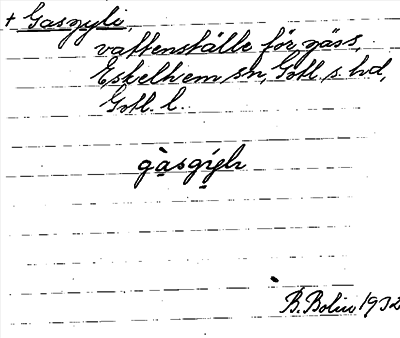 + Gasgyli,
vattenställe för gäss,
Eskelhem sn, Gotl. s. hd,
Gotl. l.
gàsgýlı
B. Bolin 1932